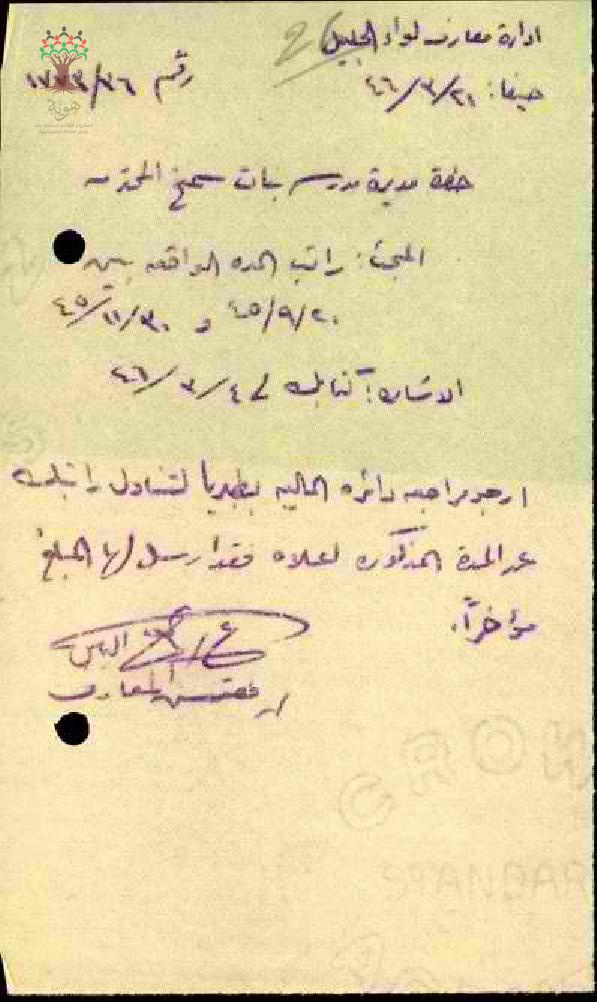 ادارة معارف لواء الجليل 26
حيفا: ٤٦/٣/٢١ رقم ١٧٣٣/٧٦
هوية
حضرة مديرة مدرسة بنات سمخ المحترمه
المبحث: راتب المده الواقعه بين
٤٥/٩/٢٠ و ٤٥/١١/٣٠
الاشاره: كتابك في ٤٦/٣/٤
ارجو مراجعة دائره الماليه بطبريا لتتناول راتبك
عن المدة المذكوره اعلاه فقد ارسل لها المبلغ
مؤخراً.
ع/
مفتش المعارف